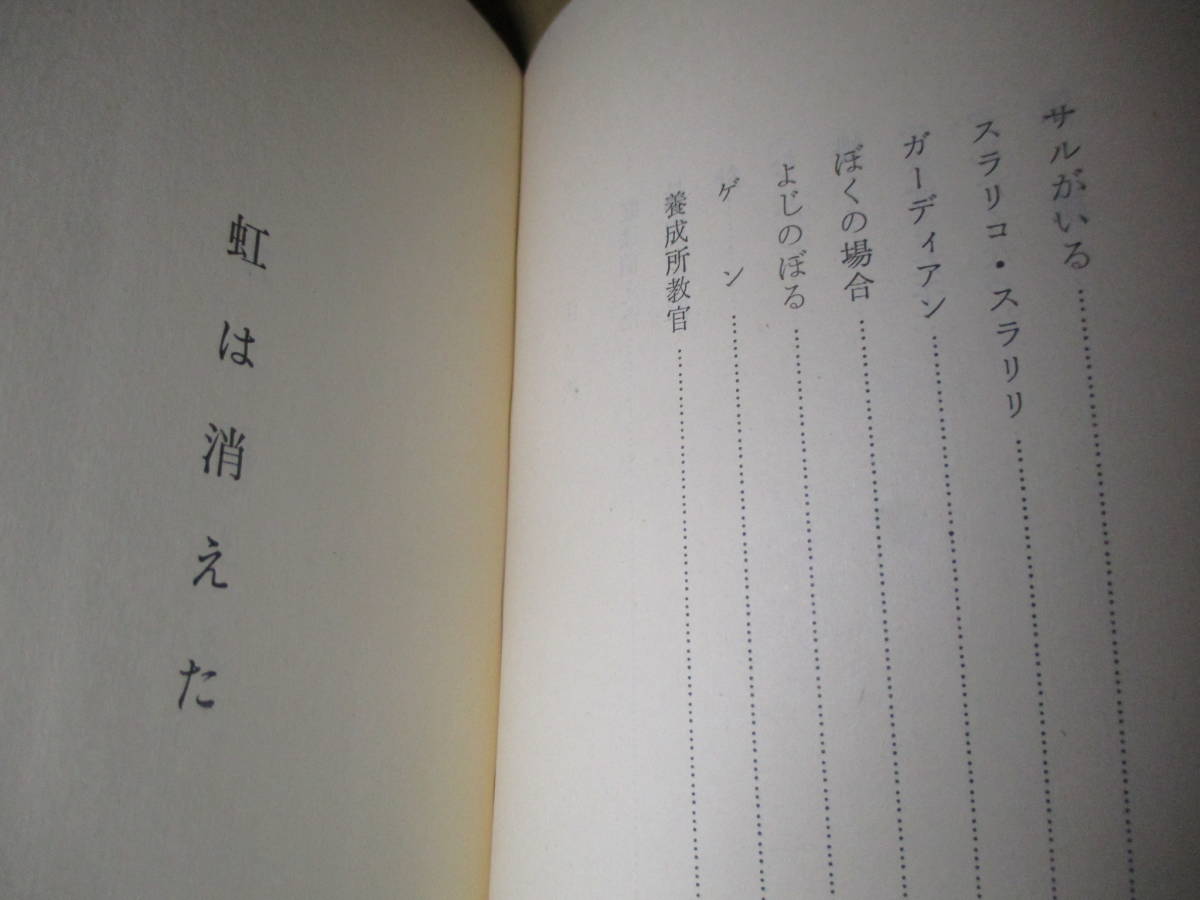 サルがいる……………………
スラリコ・スラリリ……………………
ガーディアン……………………
ぼくの場合……………………
よじのぼる……………………
ゲン……………………
養成所教官……………………
虹は消えた